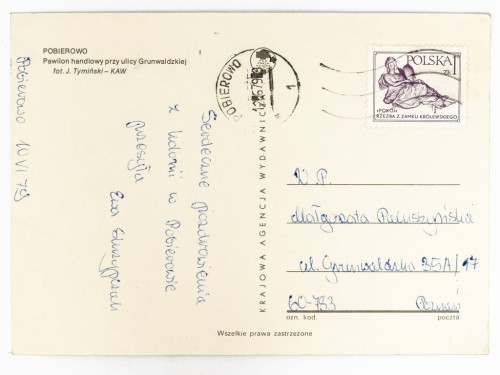 POBIEROWO
Pawilon handlowy przy ulicy Grunwaldzkiej
fot. J. Tymiński - KAW
Pobierowo 10 VI 79
Serdeczne pozdrowienia
z kolonii w Pobierowie
przesyła
Ewa
POBIEROWO
1
KRAJOWA AGENCJA WYDAWNICZA
POLSKA 1
ZŁ
«POKÓJ»
RZEŹBA Z ZAMKU KRÓLEWSKIEGO
W.P.
Małgorzata
ul. Grunwaldzka 35A/17
60-783 Poznań
ozn. kod. poczta
Wszelkie prawa zastrzeżone